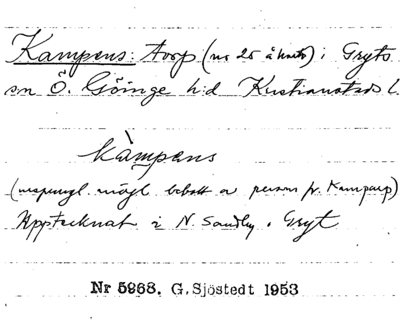 Kampens: torp (nr 25 å karta) i Gryts
sn Ö. Göinge h:d Kristianstads l.
kàmpens
(ursprungl. möjl. bebott av person fr. Kamparp)
Upptecknat i N. Sandby, Gryt
Nr 5968. G. Sjöstedt 1953